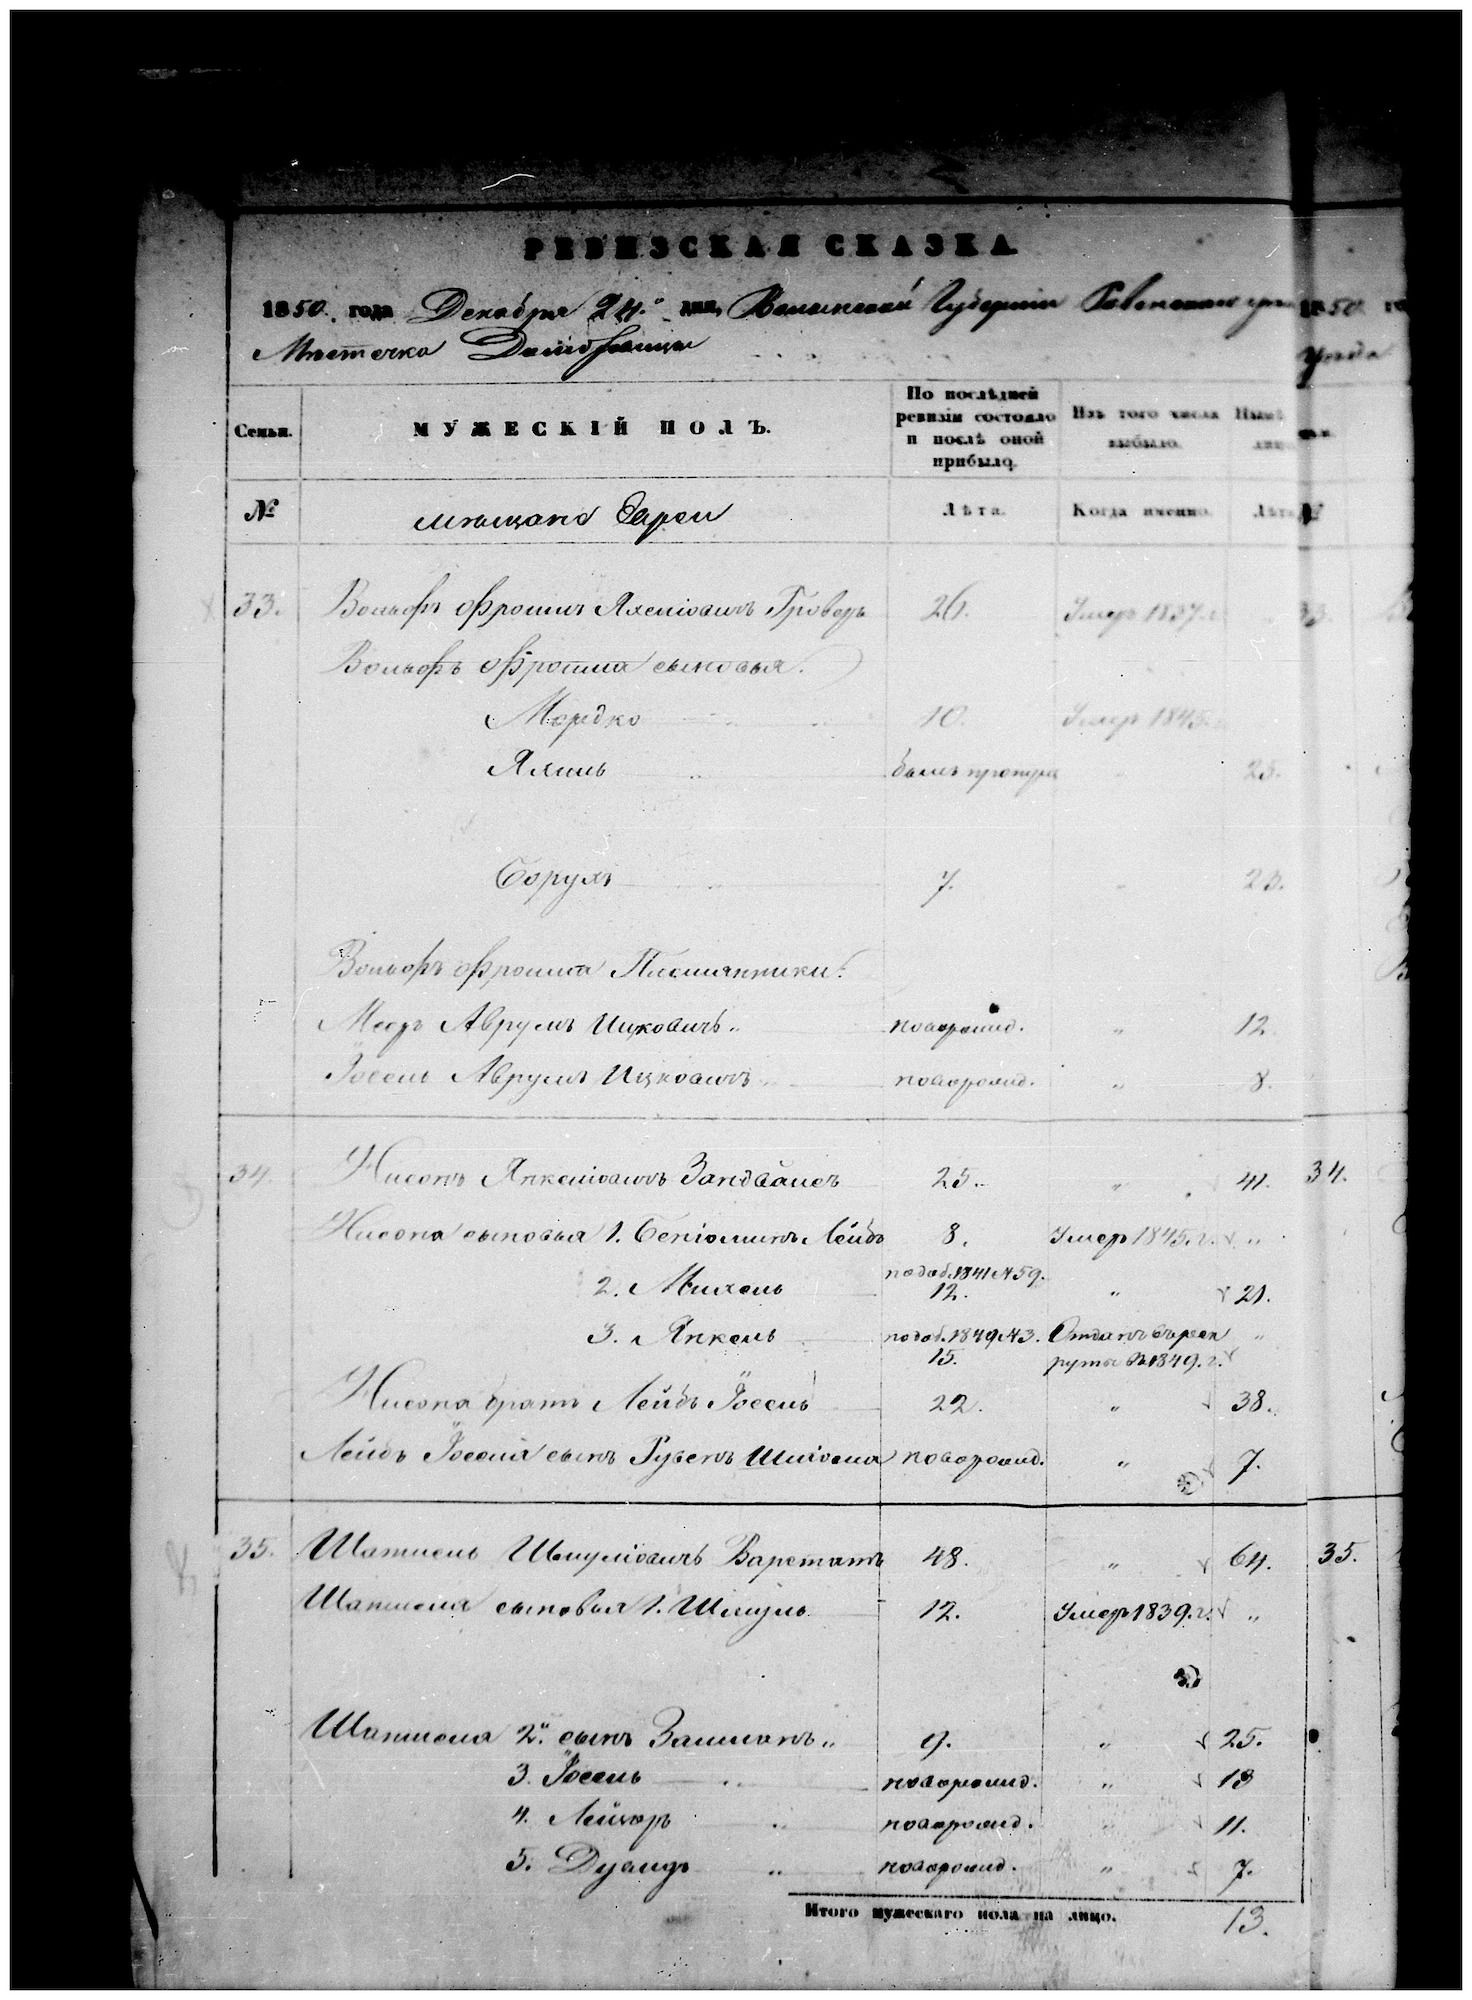 РЕВИЗСКАЯ СКАЗКА
1850 года Декабря 24 дня, Волынской Губернии Ровенскаго 1850 го
Мѣстечка Домбровицы уезда
Семьи. МУЖЕСКІЙ ПОЛЪ. По послѣдней ревизіи состояло и послѣ оной прибыло. Изъ того числа выбыло. Нынѣ лицо
№ мѣщане Евреи Лѣта. Когда именно. Лѣта
33. Вольфъ Фроимъ Яхеліовичъ 26. Умеръ 1837. г. 33.
Вольфъ Фроима сыновья.
Мордко 10. Умеръ 1845.
Яхиль былъ 25.
Борухъ 7. " 23.
Вольфъ Фроима Племянники:
Меер Аврумъ Ицковичъ новорожд. " 12.
Іосель Аврумъ Ицковичъ новорожд. " 8.
34. Нисонъ Янкеліовичъ Зандвайсъ 25. " 41. 34.
Нисона сыновья 1. Беніоминъ Лейбъ 8. Умеръ 1845. г. "
по доб. 1841 № 59.
2. Михель 12. " 21.
3. Янкель по доб. 1849 № 3. Отданъ въ рек "
15. руты въ 1849. г.
Нисона братъ Лейбъ Іосель 22. " 38.
Лейбъ Іоселя сынъ Рувенъ Шліома новорожд. " 7.
35. Шапшель Шмуліовичъ 48. " 64. 35.
Шапшеля сыновья 1. Шмуль 12. Умеръ 1839. г. "
Шапшеля 2й сынъ Залманъ " 9. " 25.
3. Іосель новорожд. " 13
4. Лейзоръ новорожд. " 11.
5. Дувидъ " новорожд. " 7.
Итого мужескаго пола на лицо. 13.